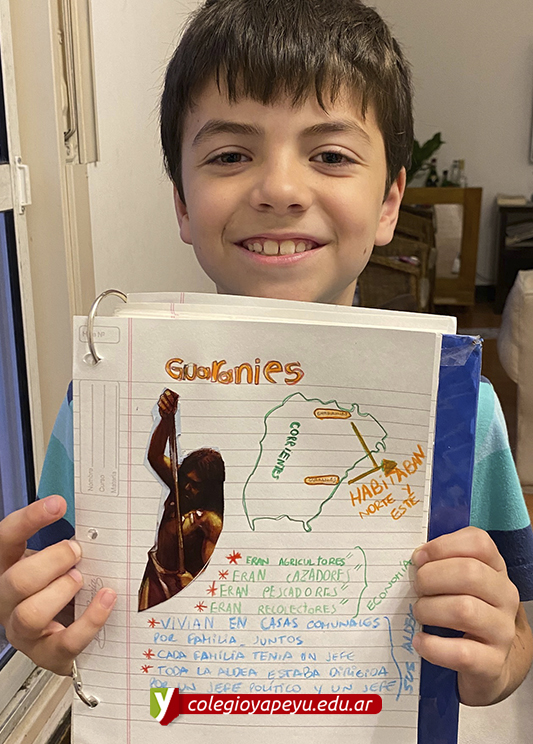 Guaranies
CORRIENTES
HABITABAN
NORTE Y
ESTE
* ERAN AGRICULTORES
* ERAN CAZADORES
* ERAN PESCADORES
* ERAN RECOLECTORES
ECONOMÍA
* VIVIAN EN CASAS COMUNALES
POR FAMILIA, JUNTOS
* CADA FAMILIA TENIA UN JEFE
* TODA LA ALDEA ESTABA DIRIGIDA
POR UN JEFE POLÍTICO Y UN JEFE
SUS ALDEAS
Nombre
Curso
Materia
y colegioyapeyu.edu.ar